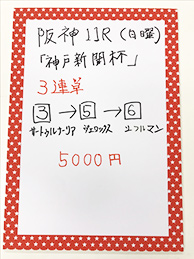 阪神11R(日曜)
「神戸新聞杯」
3連単
3→5→6
サートゥルナーリア ヴェロックス ユニコーン
5000円